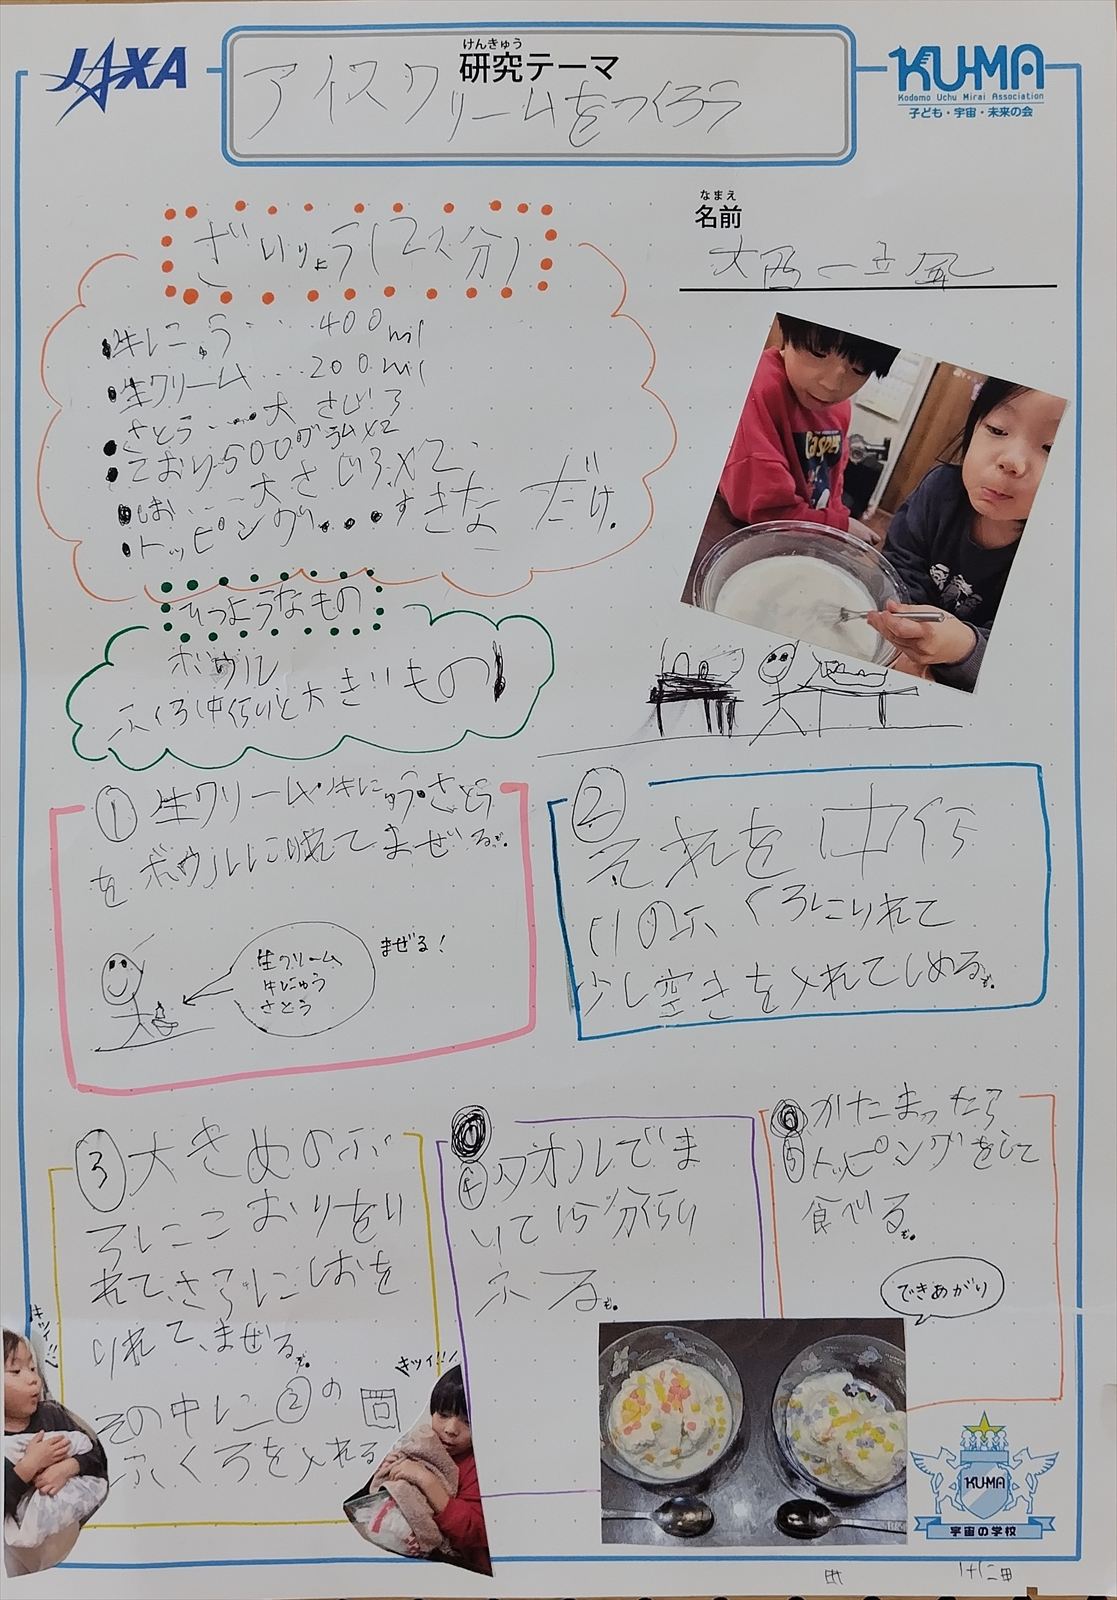 JAXA
けんきゅう
研究テーマ
アイスクリームをつくろう
KU-MA
Kodomo Uchu Mirai Association
子ども・宇宙・未来の会
なまえ
名前
ざいりょう(2人分)
・牛にゅう・・・・400ml
・生クリーム・・・200ml
・さとう・・・・大さじ3
・こおり500グラム×2
・しお・・・大さじ3×2
・トッピング・・・すきなだけ。
ひつようなもの
ボウル
ふくろ中くらいと大きいもの
① 生クリーム・牛にゅう・さとう
をボウルに入れてまぜる。
まぜる!
生クリーム
牛にゅう
さとう
②
それを中くら
いのふくろにいれて
少し空きを入れてしめる。
③ 大きめのふく
ろにこおりをい
れて、さらにしおを
いれて、まぜる。
その中に②の
ふくろを入れる
キツイ!!!
キツイ!!!
④タオルでま
いて15分くらい
ふる。
かたまったら
⑤トッピングをして
食べる。
できあがり
KU-MA
宇宙の学校